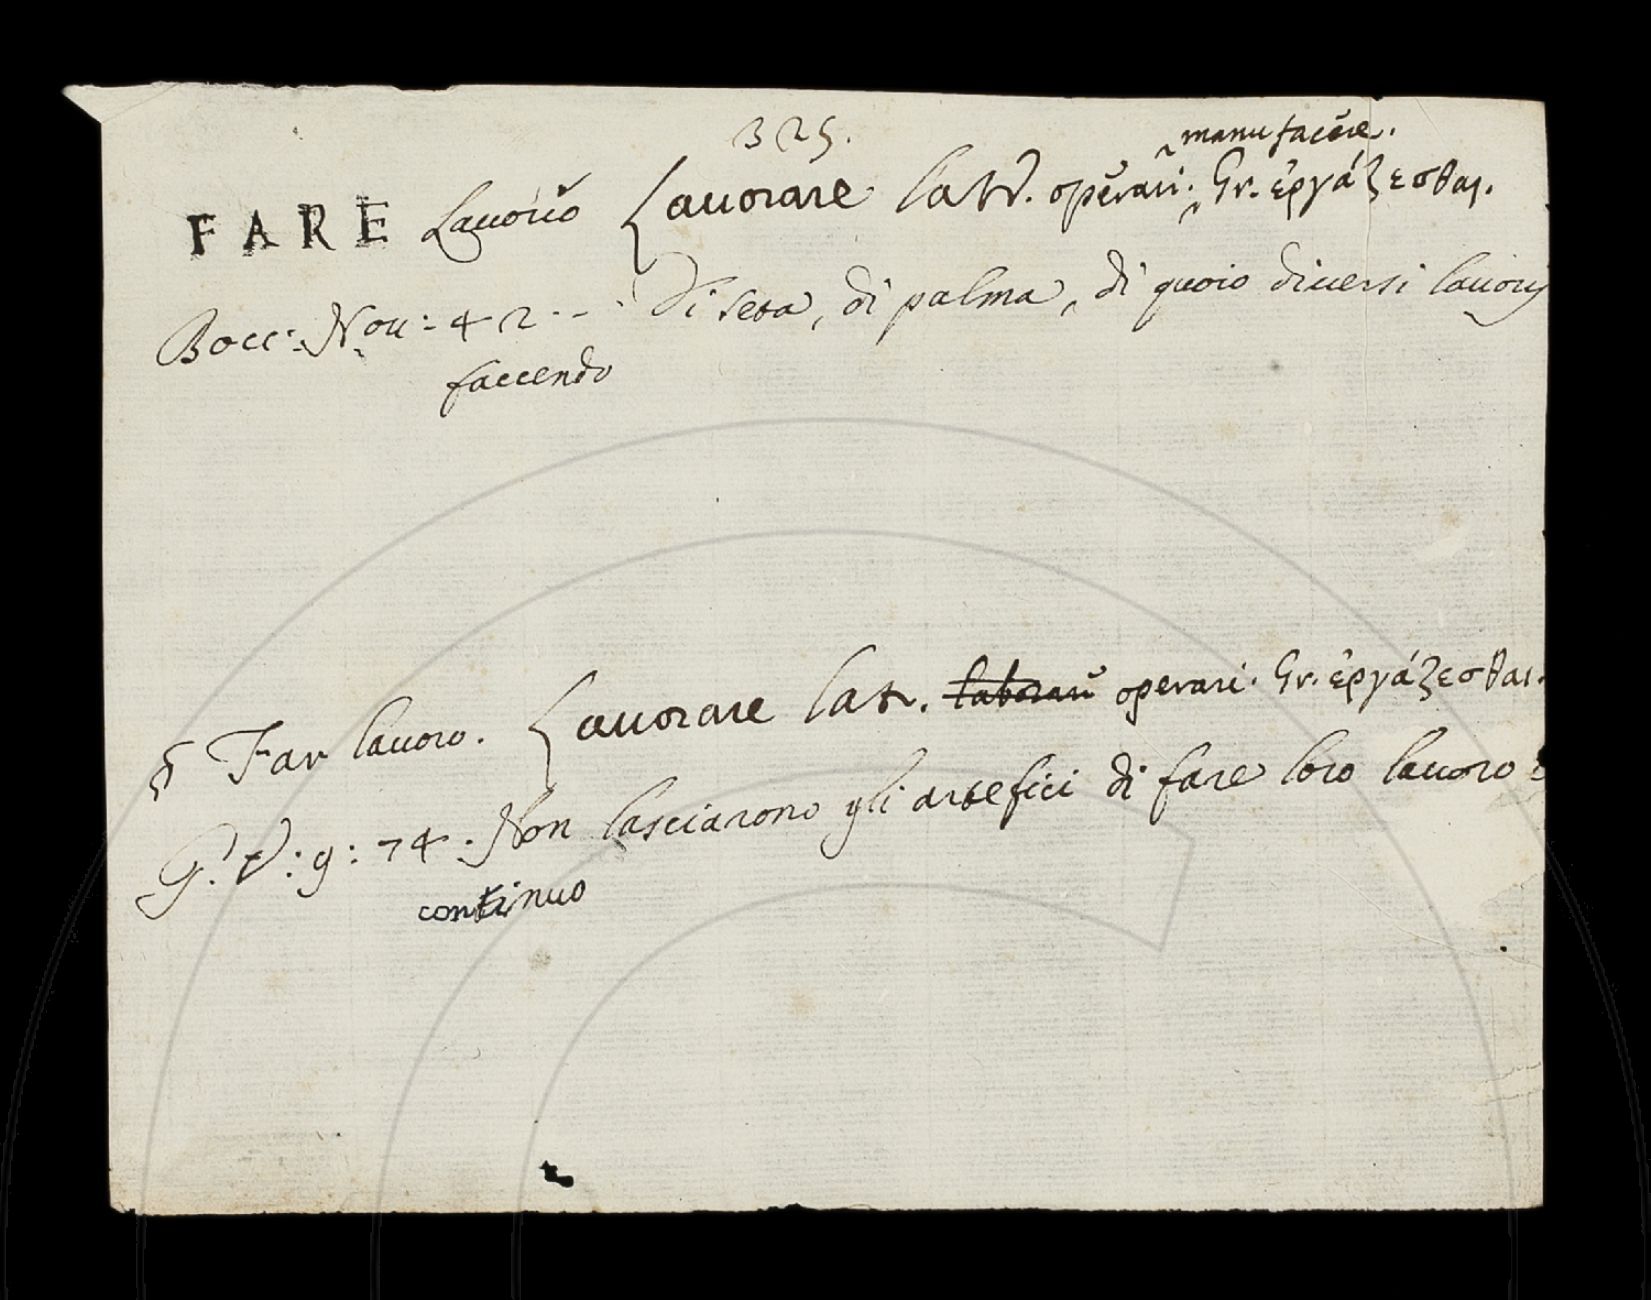 325.
manu facere.
FARE Lauorio Lauorare Latt. operari. Gr. ἐργάζεσθαι.
Bocc: Nou: 42 - - Di seta, di palma, di quoio diuersi lauorij
faccendo
§ Far lauoro. Lauorare lat. laborari operari. Gr. ἐργάζεσθαι.
G. V: 9: 74. Non lasciarono gli artefici di fare loro lauoro
continuo